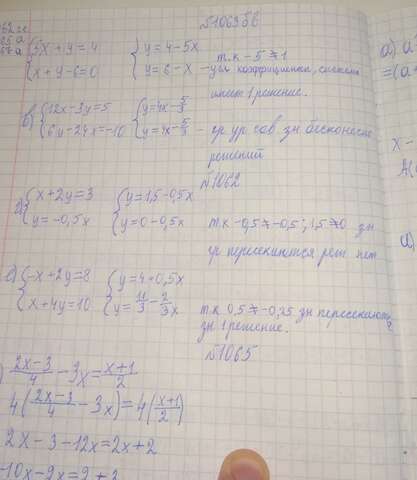 №1063бв
{5x + y = 4 {y = 4 - 5x т.к -5 ≠ 1
{x + y - 6 = 0 {y = 6 - x - угл коэффициента, система
имеет 1 решение.
в) {12x - 3y = 5 {y = 4x - 5/3
{6y - 24x = -10 {y = 4x - 5/3 - гр ур сов зн бесконечн
решений
№1062
{x + 2y = 3 {y = 1,5 - 0,5x
{y = -0,5x {y = 0 - 0,5x т к -0,5 = -0,5; 1,5 ≠ 0 зн
гр пересекаются реш нет
{-x + 2y = 8 {y = 4 + 0,5x
{x + 4y = 10 т к 0,5 ≠ -0,25 зн пересекают
зн 1 решение.
№1065
(2x - 3)/4 - 3x = (x + 1)/2
4((2x - 3)/4 - 3x) = 4((x + 1)/2)
2x - 3 - 12x = 2x + 2
-10x - 2x = 2 + 3
а) a
= (a +
x -